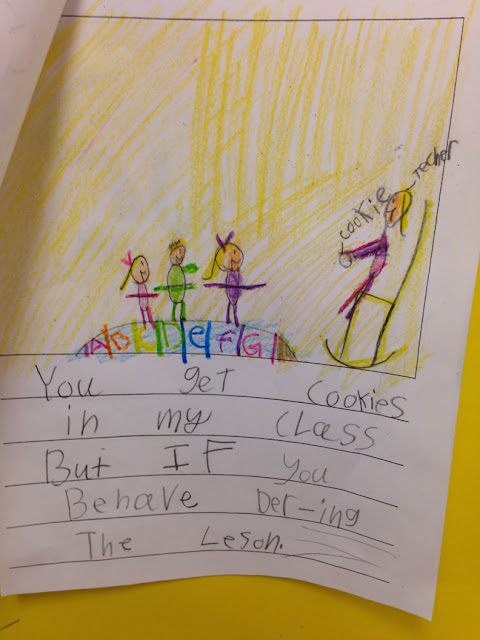 Techer
cookie
A B D e F G
You get Cookies
in my Class
But IF you
Behave Der-ing
The Leson.